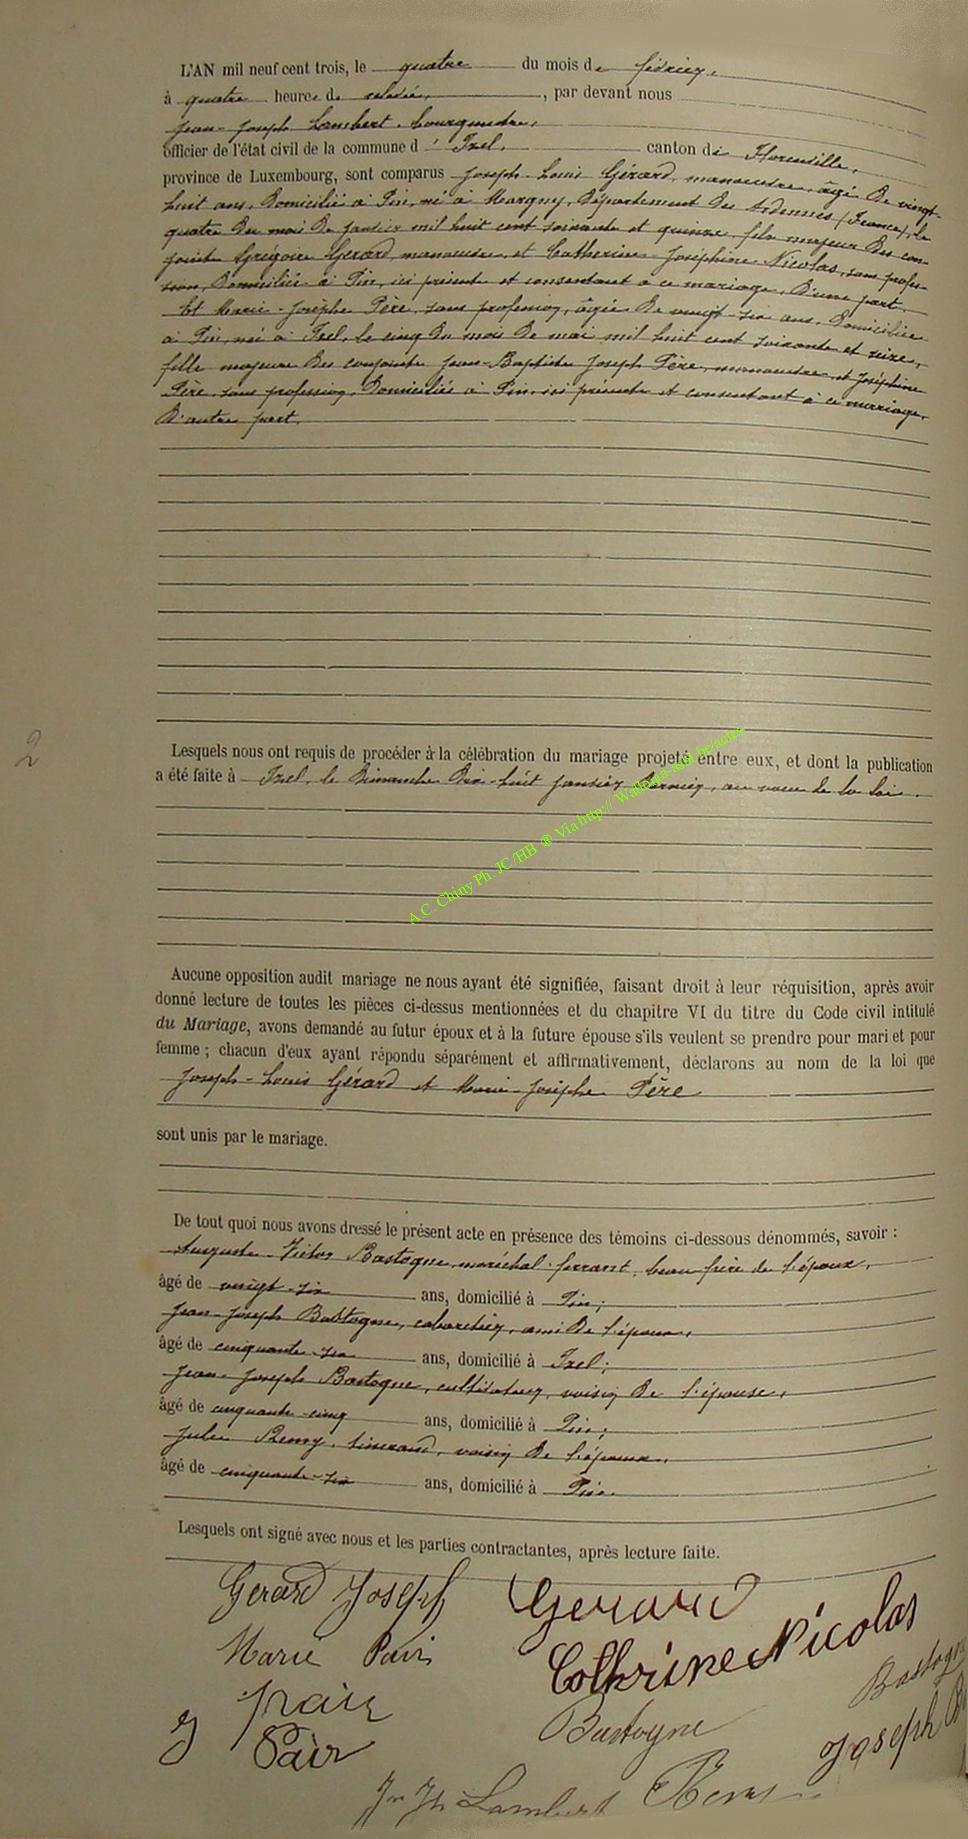 L'AN mil neuf cent trois, le quatre du mois de février,
à quatre heures de relevée, par devant nous
Jean-Joseph Lambert, bourgmestre,
officier de l'état civil de la commune d'Izel, canton de Florenville,
province de Luxembourg, sont comparus Joseph-Louis Gérard, manoeuvre, âgé de vingt-
huit ans, domicilié à Pin, né à Margny, département des Ardennes (France), le
quatre du mois de janvier mil huit cent soixante et quinze, fils majeur des con-
joints Grégoire Gerard, manoeuvre, et Catherine-Joséphine Nicolas, sans profes-
sion, domiciliés à Pin, ici présents et consentant à ce mariage, d'une part,
Et Marie-Josèphe Père, sans profession, âgée de vingt-six ans, domiciliée
à Pin, née à Izel, le cinq du mois de mai mil huit cent soixante et seize,
fille majeure des conjoints Jean-Baptiste Joseph Père, manoeuvre, et Joséphine
Père, sans profession, domiciliés à Pin, ici présents et consentant à ce mariage,
d'autre part.
2
Lesquels nous ont requis de procéder à la célébration du mariage projeté entre eux, et dont la publication
a été faite à Izel, le dimanche dix-huit janvier dernier, au voeu de la loi.
A.C. Chiny Ph. JC/HB ® Via http://
Aucune opposition audit mariage ne nous ayant été signifiée, faisant droit à leur réquisition, après avoir
donné lecture de toutes les pièces ci-dessus mentionnées et du chapitre VI du titre du Code civil intitulé
du Mariage, avons demandé au futur époux et à la future épouse s'ils veulent se prendre pour mari et pour
femme ; chacun d'eux ayant répondu séparément et affirmativement, déclarons au nom de la loi que
Joseph-Louis Gérard et Marie-Josèphe Père
sont unis par le mariage.
De tout quoi nous avons dressé le présent acte en présence des témoins ci-dessous dénommés, savoir :
Auguste-Victor Bastogne, maréchal-ferrant, beau frère de l'époux,
âgé de vingt-six ans, domicilié à Pin;
Jean-Joseph Bastogne, cabaretier, ami de l'époux,
âgé de cinquante-six ans, domicilié à Izel;
Jean-Joseph Bastogne, cultivateur, voisin de l'épouse,
âgé de cinquante-cinq ans, domicilié à Pin;
Jules Remy, tisserand, voisin de l'époux,
âgé de cinquante-six ans, domicilié à Pin.
Lesquels ont signé avec nous et les parties contractantes, après lecture faite.
Gerard Joseph Gerard
Marie Pair Cathrine Nicolas
Bastogne
Pair Bastogne Joseph
Jn Jh Lambert Remy